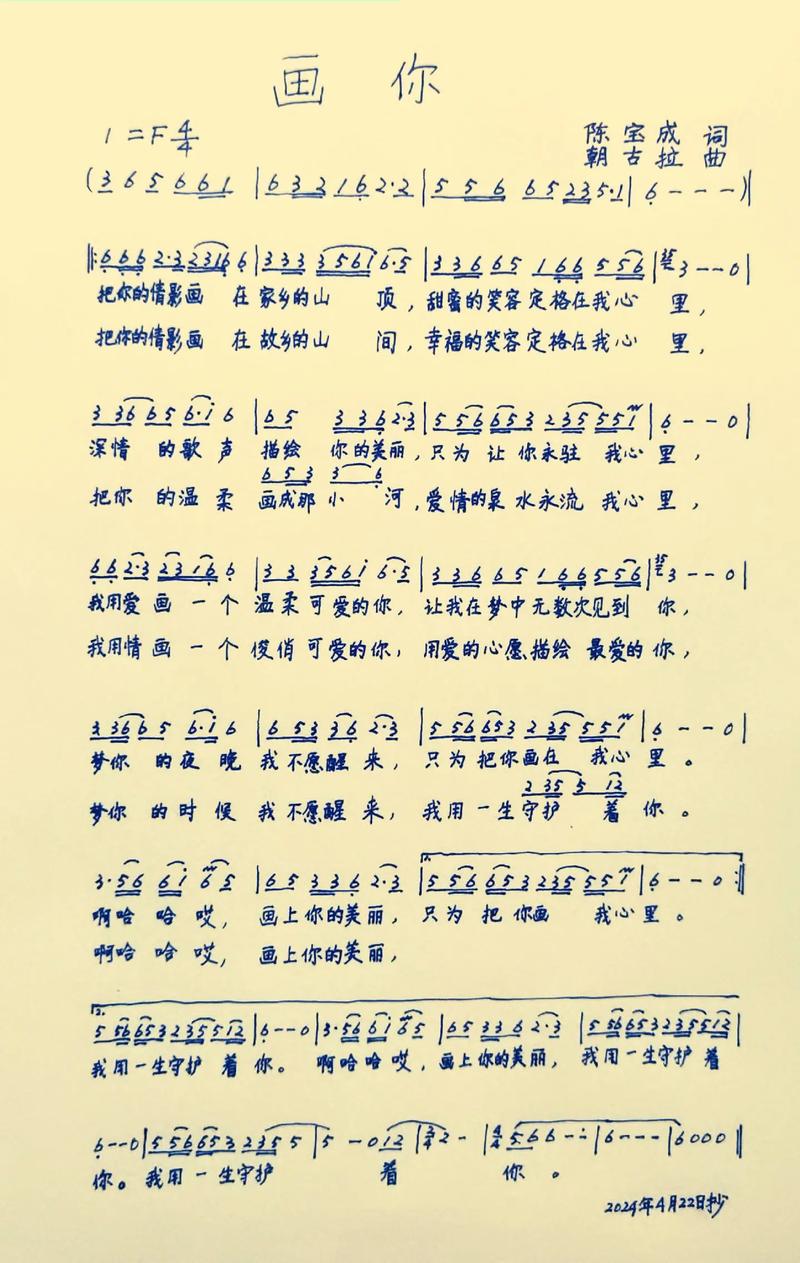 画 你
1=F 4/4
陈宝成 词
朝古拉 曲
(3 6 5 6 6 1 | 6 3 2 1 6 2·2 | 5 5 6 6 5 2 3 5·1 | 6 - - -)‖
‖:6 6 6 2·3 2 3 1 6 6 | 3 3 3 3 5 6 i 6·5 | 3 3 6 6 5 1 6 6 5 5 6 | 3 - - 0 |
把你的倩影画 在家乡的山 顶,甜蜜的笑容定格在我心 里,
把你的倩影画 在故乡的山 间,幸福的笑容定格在我心 里,
3 3 6 6 5 6·i 6 | 6 5 3 3 6 2·3 | 5 5 6 6 5 3 2 3 5 5 5 1 | 6 - - 0 |
深情 的歌 声 描绘 你的美丽,只为 让 你永驻 我心里,
6 5 3 3 6
把你 的温 柔 画成那 小 河,爱情的泉 水永流 我心里,
6 6 2·3 2 3 1 6 6 | 3 3 3 5 6 i 6·5 | 3 3 6 6 5 1 6 6 5 5 6 | 3 - - 0 |
我用爱 画 一 个 温柔可爱的你, 让我在梦中无数次见到 你,
我用情 画 一 个 俊俏可爱的你, 用爱的心愿描绘 最爱的你,
3 3 6 6 5 6·i 6 | 6 5 3 3 6 2·3 | 5 5 6 6 5 3 2 3 5 5 5 1 | 6 - - 0 |
梦你 的夜 晚 我不愿醒 来, 只为 把你画在 我心里。
2 3 5 5 1 2
梦你 的时 候 我不愿醒来, 我用一生守护 着 你。
3·5 6 6 i 6 5 | 6 5 3 3 6 2·3 | 1. 5 5 6 6 5 3 2 3 5 5 5 1 | 6 - - 0 :‖
啊哈 哈 哎, 画上你的美丽, 只为 把 你画 我心里。
啊哈 哈 哎, 画上你的美丽,
2. 5 5 6 6 5 3 2 3 5 5 1 2 | 6 - - 0 | 3·5 6 6 i 6 5 | 6 5 3 3 6 2·3 | 5 5 6 6 5 3 2 3 5 5 1 2 |
我用一生守护 着 你。 啊哈哈哎,画上你的美丽, 我用一生守护 着
6 - - 0 | 5 5 6 6 5 3 2 3 5 5 | 5 - 0 1 2 | 3/4 2 - | 4/4 5 6 6 - - | 6 - - - | 6 0 0 0 ‖
你。我用一生守护 着 你 。
2024年4月22日抄